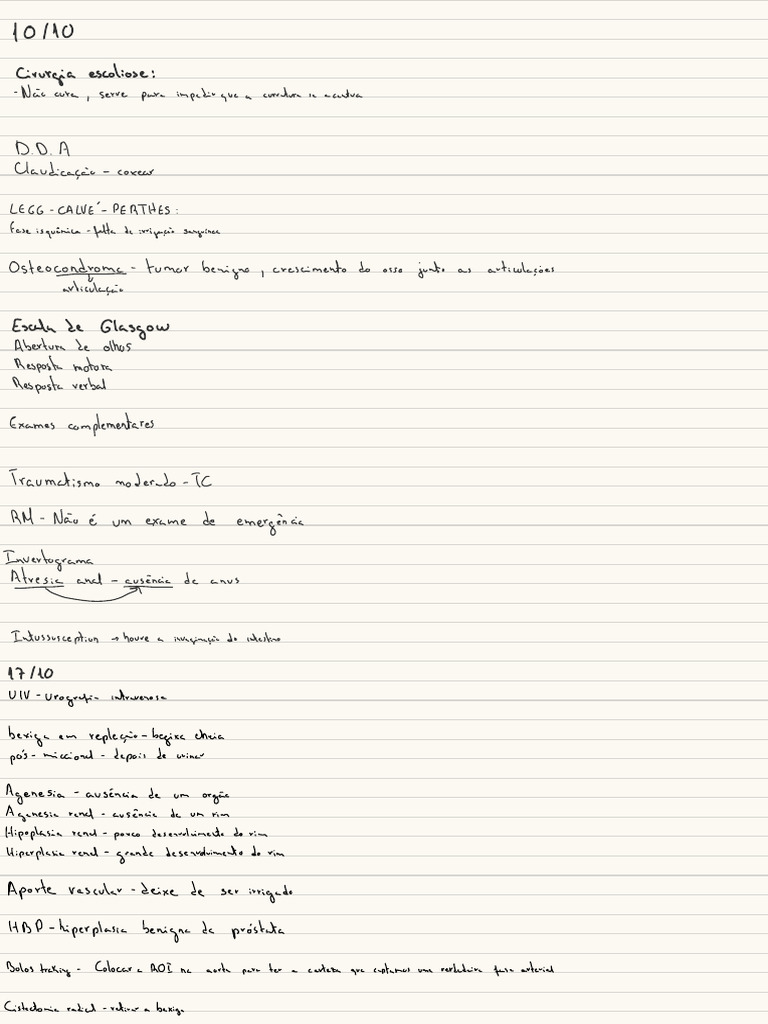 10/10
Cirurgia escoliose:
- Não cura, serve para impedir que a curvatura se acentua
D.D.A
Claudicação - coxear
LEGG-CALVÉ-PERTHES:
Fase isquémica - falta de irrigação sanguínea
Osteocondroma - tumor benigno, crescimento do osso junto as articulações
articulação
Escala de Glasgow
Abertura de olhos
Resposta motora
Resposta verbal
Exames complementares
Traumatismo moderado - TC
RM - Não é um exame de emergência
Invertograma
Atresia anal - ausência de anus
Intussusception → houve a invaginação do intestino
17/10
UIV - urografia intravenosa
bexiga em repleção - bexiga cheia
pós-miccional - depois de urinar
Agenesia - ausência de um orgão
Agenesia renal - ausência de um rim
Hipoplasia renal - pouco desenvolvimento do rim
Hiperplasia renal - grande desenvolvimento do rim
Aporte vascular - deixe de ser irrigado
HBP - hiperplasia benigna da próstata
Bolos traking - Colocar a ROI na aorta para ter a certeza que captamos uma verdadeira fase arterial
Cistectomia radical - retirar a bexiga